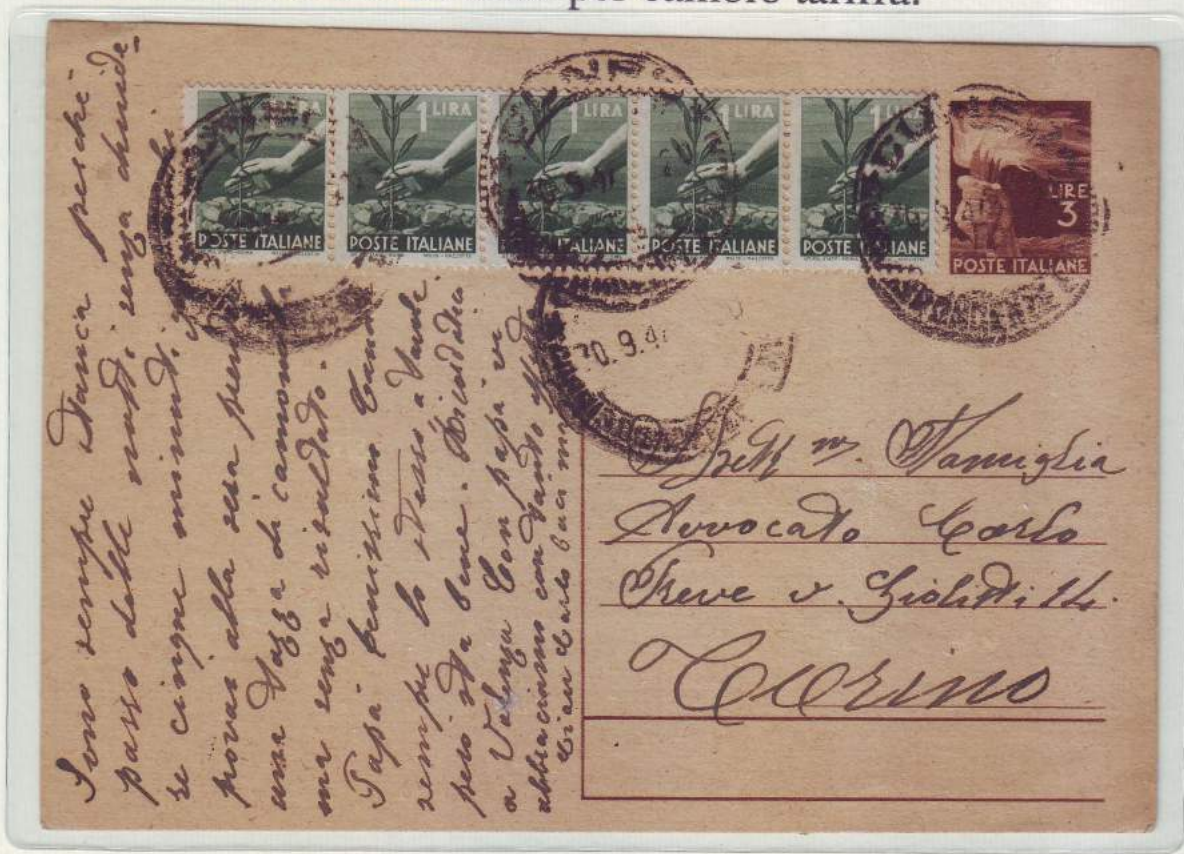 per cambio tariffa.
1 LIRA
POSTE ITALIANE
1 LIRA
POSTE ITALIANE
1 LIRA
POSTE ITALIANE
1 LIRA
POSTE ITALIANE
1 LIRA
POSTE ITALIANE
LIRE
3
POSTE ITALIANE
30.9.4
Famiglia
Avvocato Carlo
Treve v. Giolitti 14.
Torino
Sono sempre stanca perchè
passo delle notti senza chiude-
re cinque minuti.
provai alla sera
una tazza di camomilla
ma senza risultato.
Papà benissimo
sempre lo stesso a
però sta bene.
a Valenza Con papà vi
abbracciamo con tanto affetto
Ciau Carlo baci